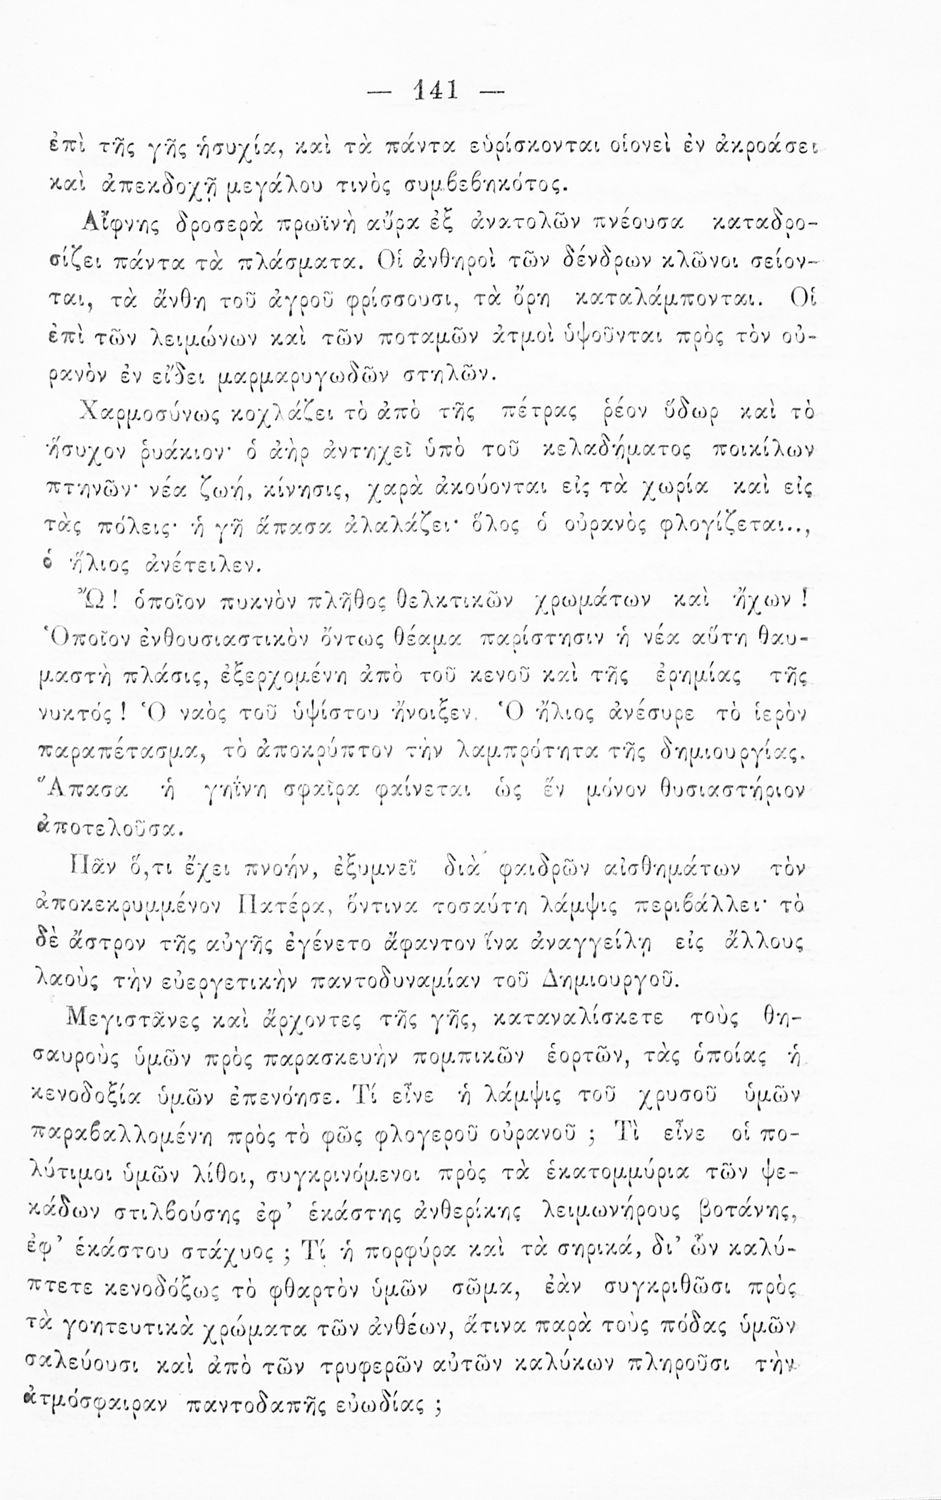 — 141 —
ἐπὶ τῆς γῆς ἡσυχία, καὶ τὰ πάντα εὑρίσκονται οἱονεὶ ἐν ἀκροάσει
καὶ ἀπεκδοχῇ μεγάλου τινὸς συμβεβηκότος.
Αἴφνης δροσερὰ πρωϊνὴ αὔρα ἐξ ἀνατολῶν πνέουσα καταδρο-
σίζει πάντα τὰ πλάσματα. Οἱ ἀνθηροὶ τῶν δένδρων κλῶνοι σείον-
ται, τὰ ἄνθη τοῦ ἀγροῦ φρίσσουσι, τὰ ὄρη καταλάμπονται. Οἱ
ἐπὶ τῶν λειμώνων καὶ τῶν ποταμῶν ἀτμοὶ ὑψοῦνται πρὸς τὸν οὐ-
ρανὸν ἐν εἴδει μαρμαρυγωδῶν στηλῶν.
Χαρμοσύνως κοχλάζει τὸ ἀπὸ τῆς πέτρας ῥέον ὕδωρ καὶ τὸ
ἥσυχον ῥυάκιον· ὁ ἀὴρ ἀντηχεῖ ὑπὸ τοῦ κελαδήματος ποικίλων
πτηνῶν· νέα ζωή, κίνησις, χαρὰ ἀκούονται εἰς τὰ χωρία καὶ εἰς
τὰς πόλεις· ἡ γῆ ἅπασα ἀλαλάζει· ὅλος ὁ οὐρανὸς φλογίζεται..,
ὁ ἥλιος ἀνέτειλεν.
Ὢ! ὁποῖον πυκνὸν πλῆθος θελκτικῶν χρωμάτων καὶ ἤχων !
Ὁποῖον ἐνθουσιαστικὸν ὄντως θέαμα παρίστησιν ἡ νέα αὕτη θαυ-
μαστὴ πλάσις, ἐξερχομένη ἀπὸ τοῦ κενοῦ καὶ τῆς ἐρημίας τῆς
νυκτός ! Ὁ ναὸς τοῦ ὑψίστου ἤνοιξεν. Ὁ ἥλιος ἀνέσυρε τὸ ἱερὸν
παραπέτασμα, τὸ ἀποκρύπτον τὴν λαμπρότητα τῆς δημιουργίας.
Ἅπασα ἡ γηΐνη σφαῖρα φαίνεται ὡς ἓν μόνον θυσιαστήριον
ἀποτελοῦσα.
Πᾶν ὅ,τι ἔχει πνοήν, ἐξυμνεῖ διὰ φαιδρῶν αἰσθημάτων τὸν
ἀποκεκρυμμένον Πατέρα, ὅντινα τοσαύτη λάμψις περιβάλλει· τὸ
δὲ ἄστρον τῆς αὐγῆς ἐγένετο ἄφαντον ἵνα ἀναγγείλῃ εἰς ἄλλους
λαοὺς τὴν εὐεργετικὴν παντοδυναμίαν τοῦ Δημιουργοῦ.
Μεγιστᾶνες καὶ ἄρχοντες τῆς γῆς, καταναλίσκετε τοὺς θη-
σαυροὺς ὑμῶν πρὸς παρασκευὴν πομπικῶν ἑορτῶν, τὰς ὁποίας ἡ
κενοδοξία ὑμῶν ἐπενόησε. Τί εἶνε ἡ λάμψις τοῦ χρυσοῦ ὑμῶν
παραβαλλομένη πρὸς τὸ φῶς φλογεροῦ οὐρανοῦ ; Τὶ εἶνε οἱ πο-
λύτιμοι ὑμῶν λίθοι, συγκρινόμενοι πρὸς τὰ ἑκατομμύρια τῶν ψε-
κάδων στιλβούσης ἐφ’ ἑκάστης ἀνθερίκης λειμωνήρους βοτάνης,
ἐφ’ ἑκάστου στάχυος ; Τί ἡ πορφύρα καὶ τὰ σηρικά, δι’ ὧν καλύ-
πτετε κενοδόξως τὸ φθαρτὸν ὑμῶν σῶμα, ἐὰν συγκριθῶσι πρὸς
τὰ γοητευτικὰ χρώματα τῶν ἀνθέων, ἅτινα παρὰ τοὺς πόδας ὑμῶν
σαλεύουσι καὶ ἀπὸ τῶν τρυφερῶν αὐτῶν καλύκων πληροῦσι τὴν
ἀτμόσφαιραν παντοδαπῆς εὐωδίας ;